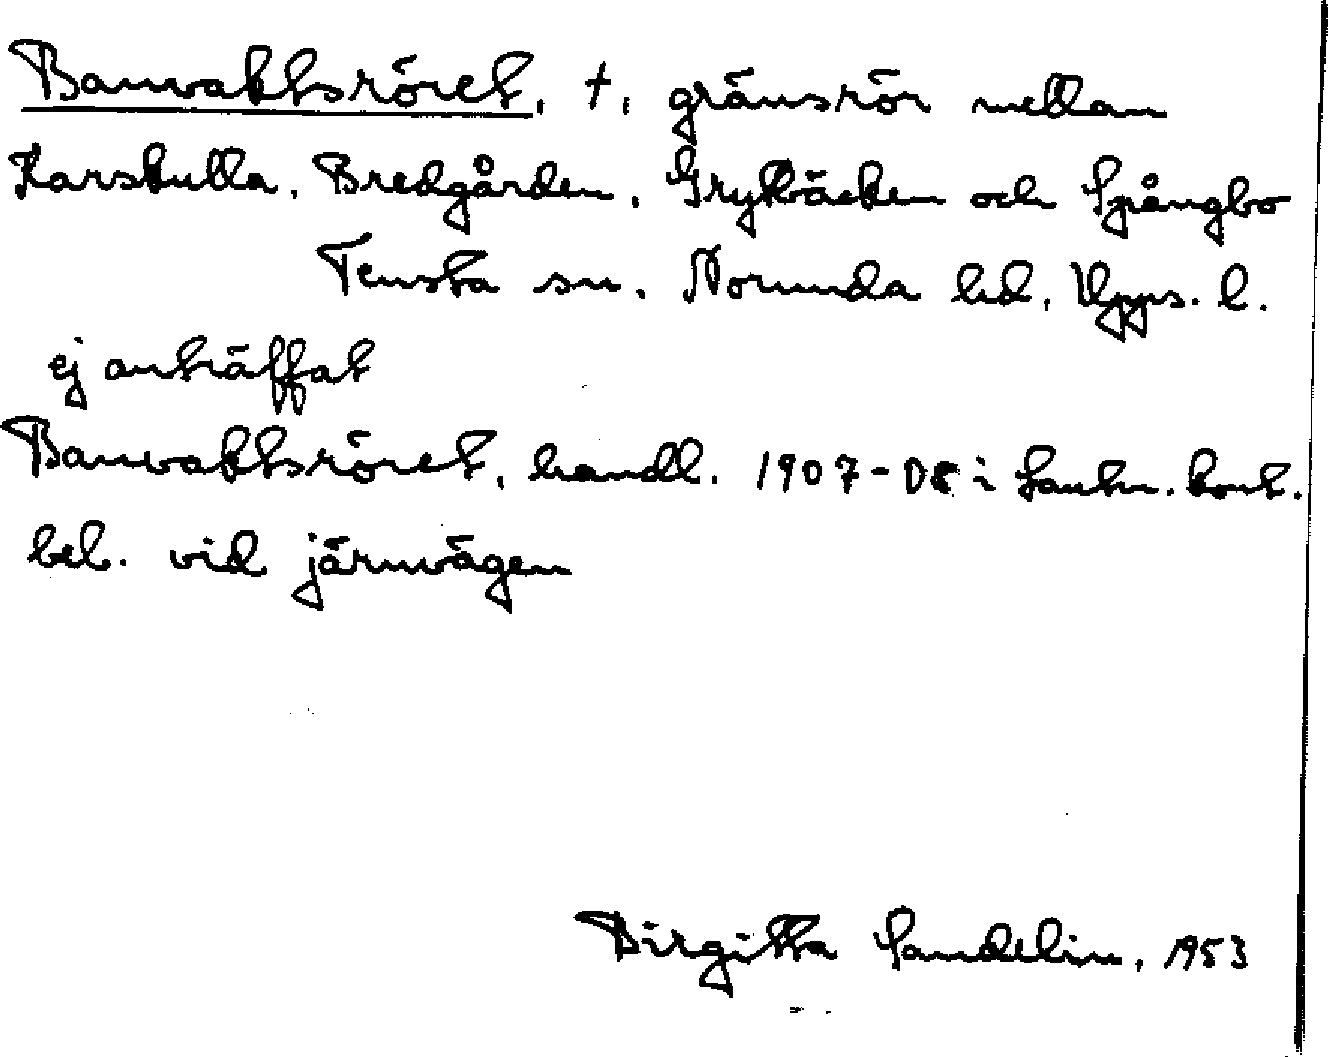 Banvaktsröret, †, gränsrör mellan
Karskulla, Bredgården, Grytbäcken och Spångbo
Tensta sn, Norunda hd, Upps. l.
ej anträffat
Banvaktsröret, handl. 1907-08 i Lantm. kont.
bel. vid järnvägen
Birgitta Sandelin, 1953